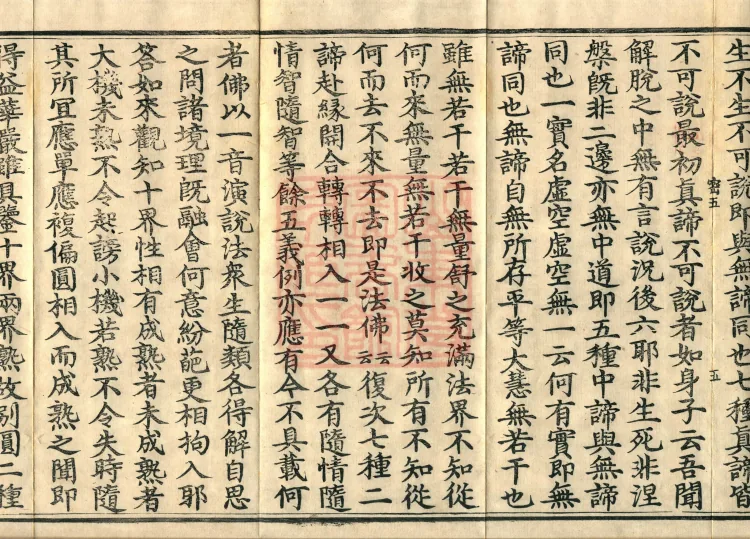 生不生不可說即與無諦同也七種真諦皆
不可說最初真諦不可說者如身子云吾聞
解脫之中無有言說況後六耶非生死非涅
槃旣非二邊亦無中道即五種中諦與無諦
同也一實名虛空虛空無一云何有實即無
諦同也無諦自無所存平等大慧無若干也
雖無若干若干無量舒之充滿法界不知從
何而來無量無若干收之莫知所有不知從
何而去不來不去即是法佛云云復次七種二
諦赴緣開合轉轉相入一一又各有隨情隨
情智隨智等餘五義例亦應有今不具載何
者佛以一音演說法衆生隨類各得解自思
之問諸境理旣融會何意紛葩更相拘入耶
答如來觀知十界性相有成熟者未成熟者
大機未熟不令起謗小機若熟不令失時隨
其所宜應單應複偏圓相入而成熟之聞即
得益華嚴雖具鑒十界兩界熟故別圓二種